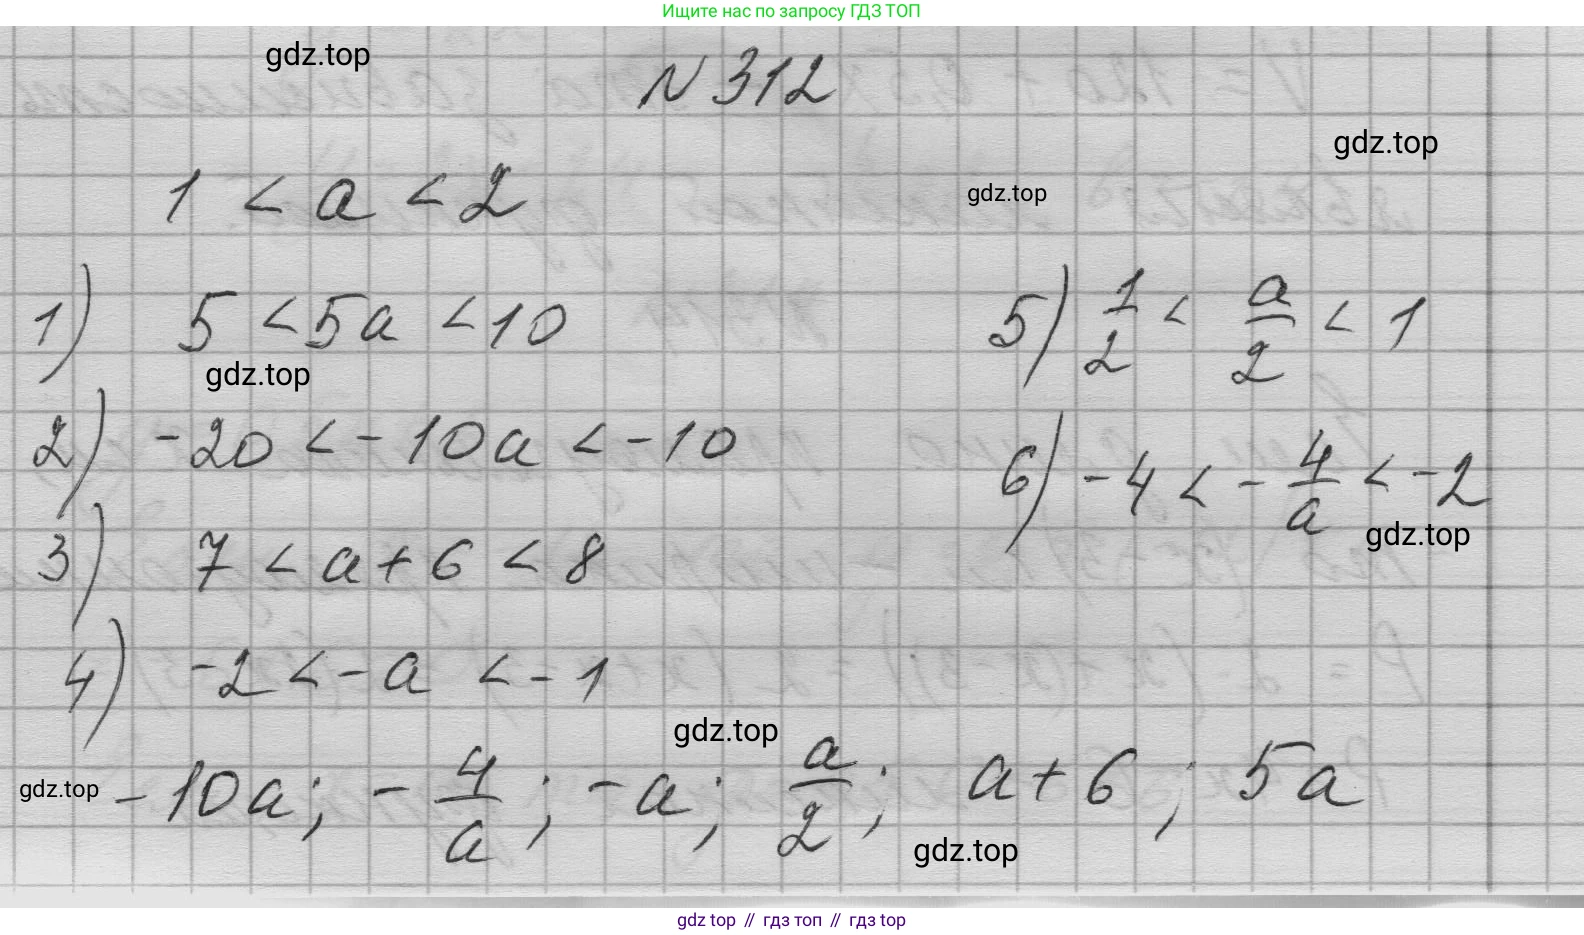 Ищите нас по запросу ГДЗ ТОП
gdz.top
N 312
gdz.top
1 < a < 2
gdz.top
1) 5 < 5a < 10
5) 1/2 < a/2 < 1
gdz.top
2) -20 < -10a < -10
6) -4 < -4/a < -2
gdz.top
3) 7 < a + 6 < 8
4) -2 < -a < -1
gdz.top
gdz.top
-10a; -4/a; -a; a/2; a + 6; 5a
gdz.top
gdz top // гдз топ // гдз top